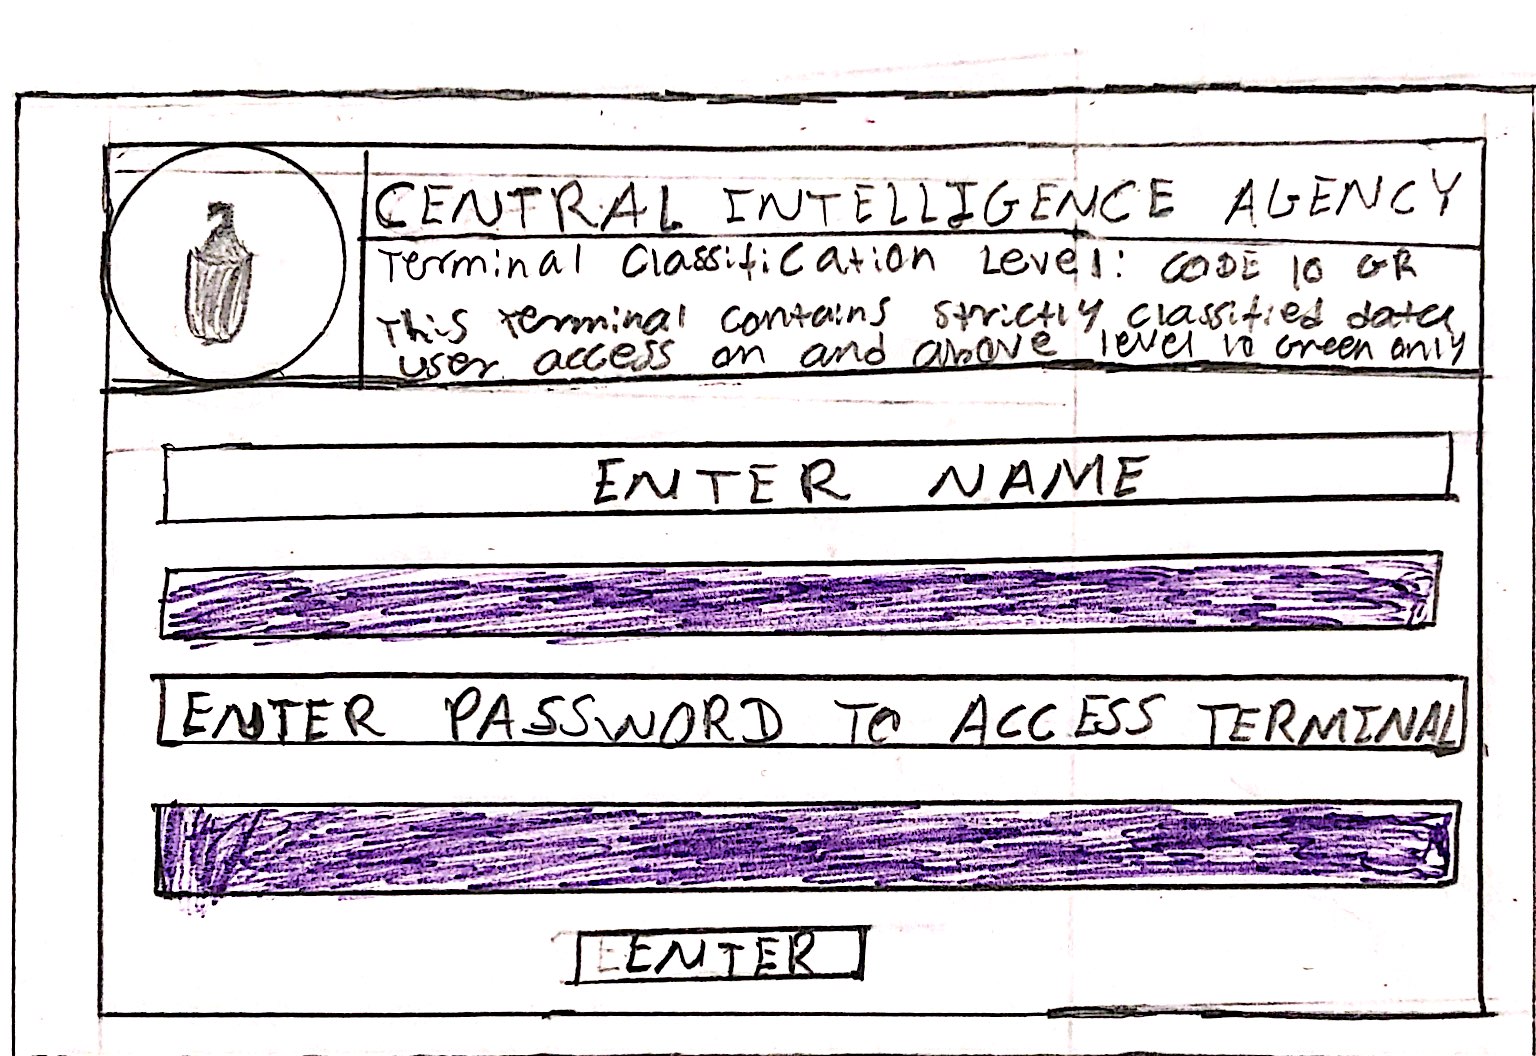 CENTRAL INTELLIGENCE AGENCY
Terminal Classification Level: CODE 10 GR
This Terminal contains strictly classified data,
user access on and above level 10 Green only
ENTER NAME
ENTER PASSWORD TO ACCESS TERMINAL
ENTER